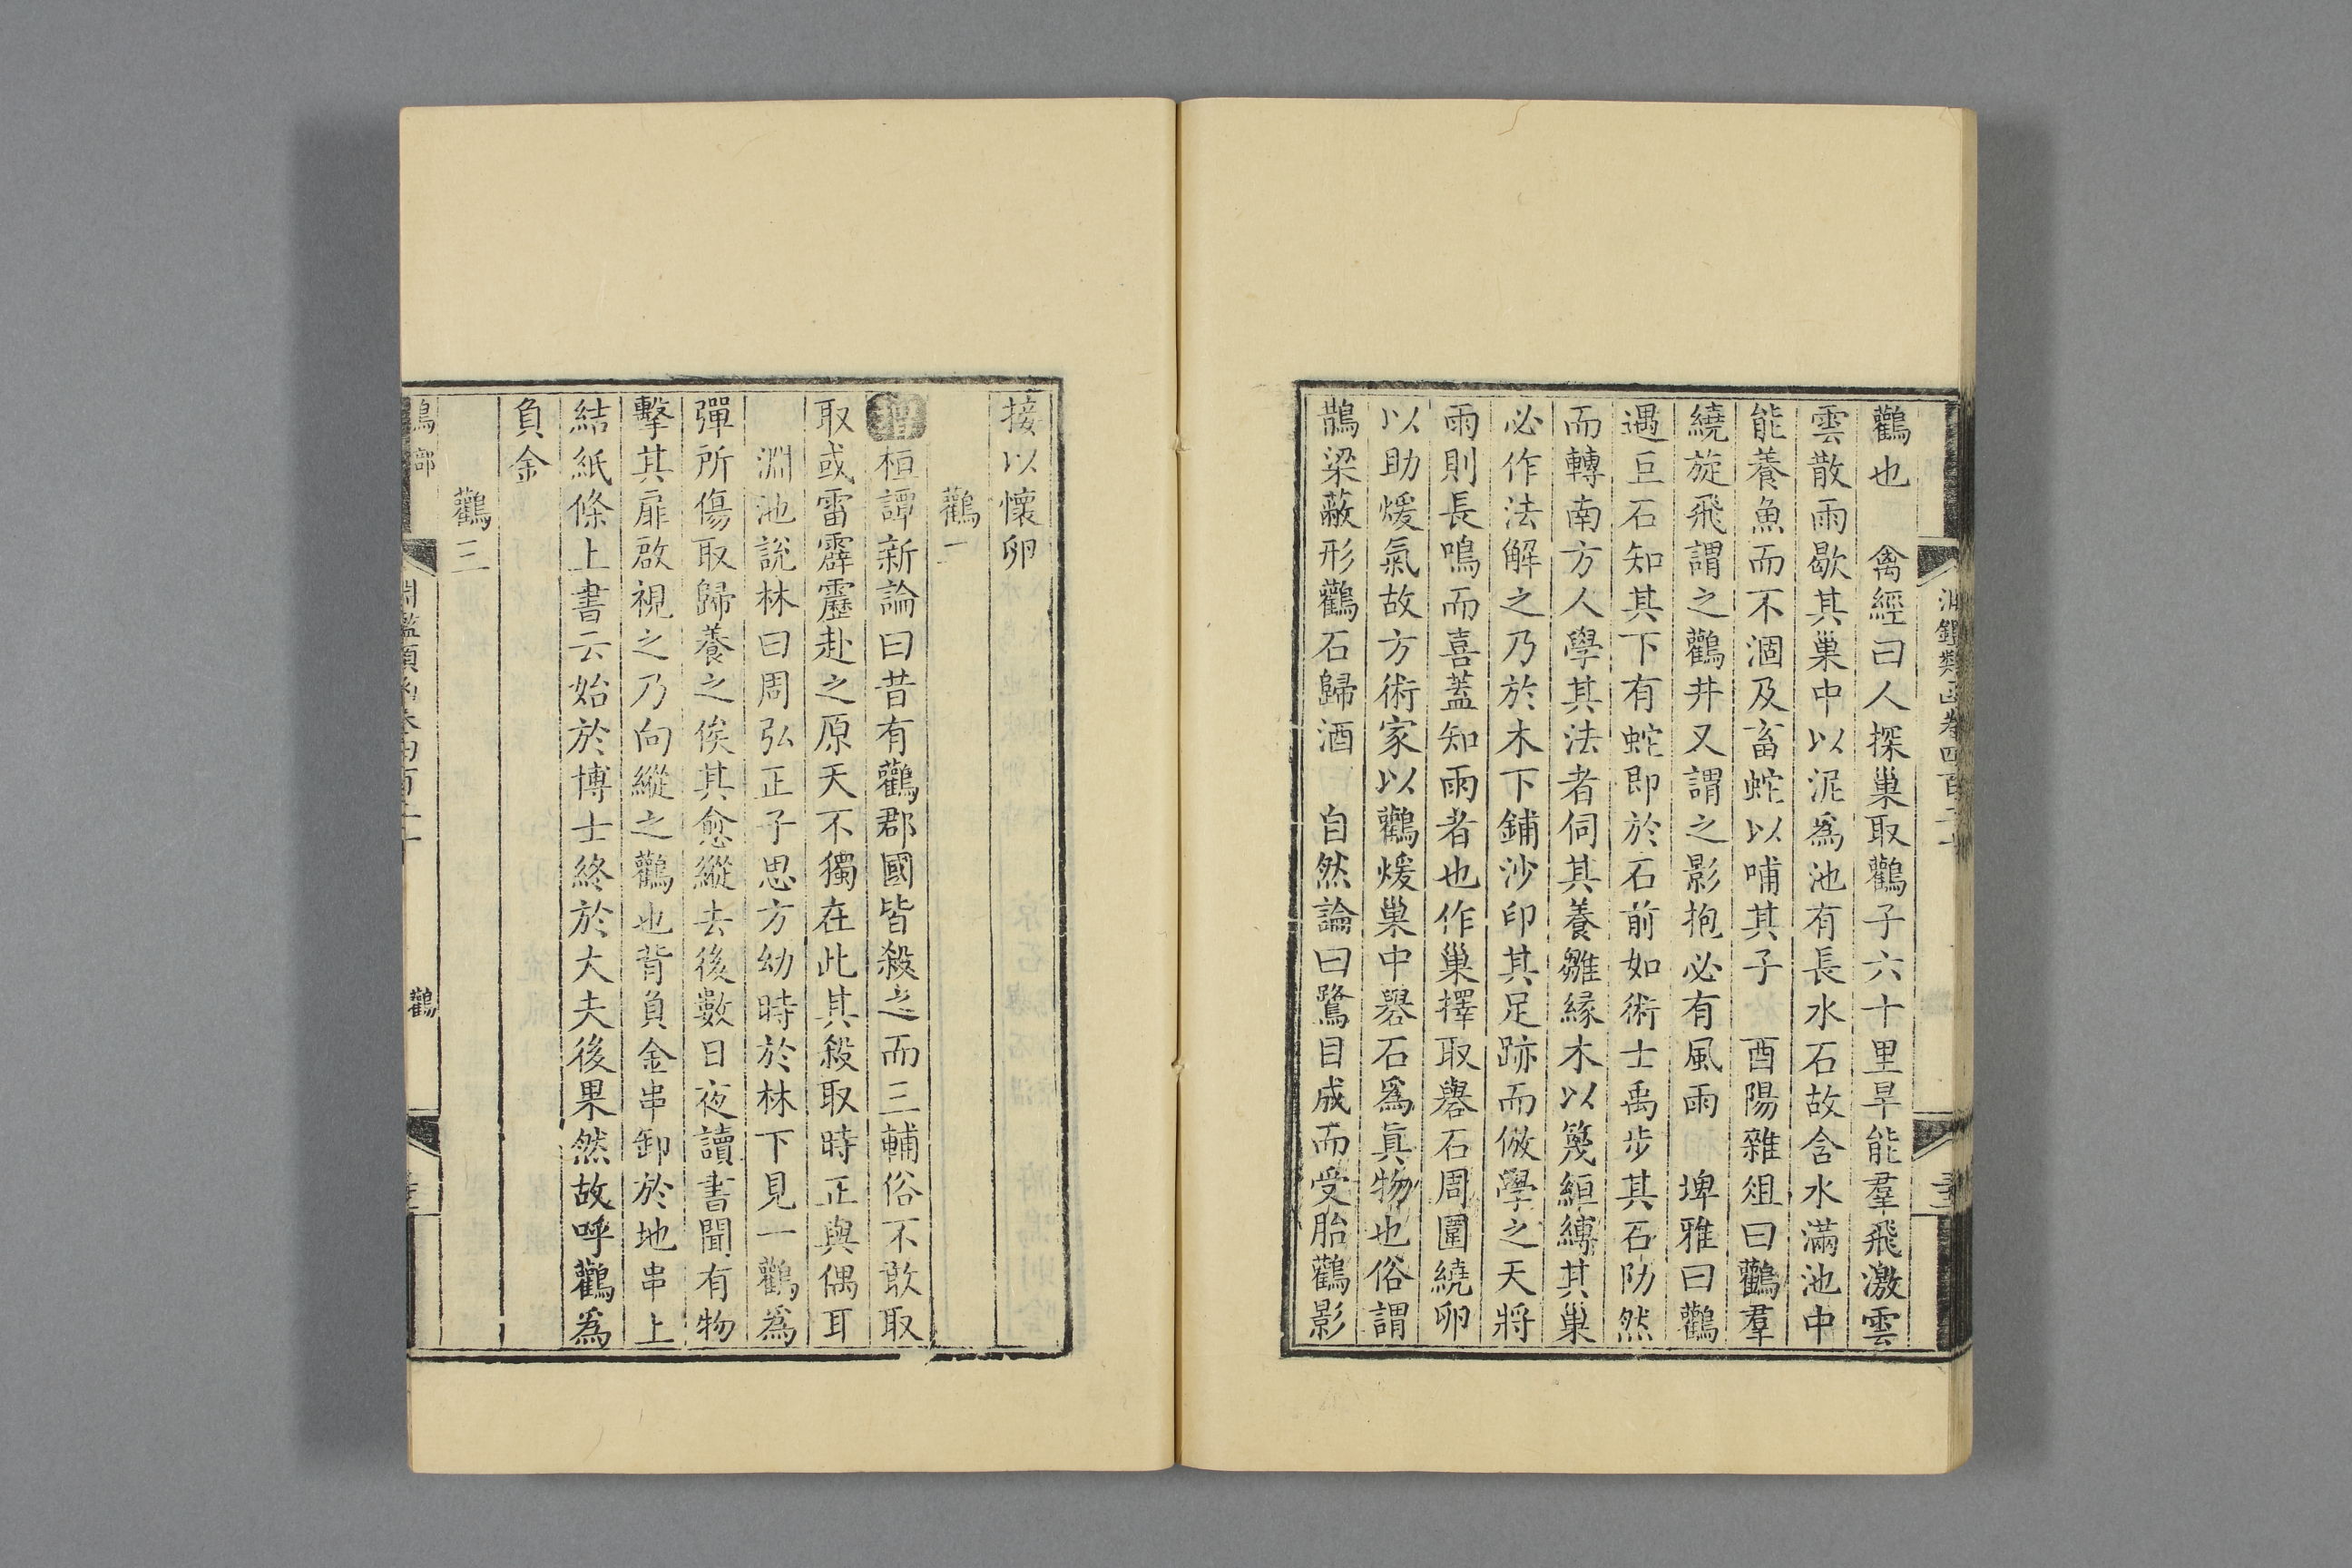 鸛也　禽經曰人探巢取鸛子六十里旱能羣飛激雲
雲散雨歇其巢中以泥爲池有長水石故含水滿池中
能養魚而不涸及畜蛇以哺其子　酉陽雜俎曰鸛羣
繞旋飛謂之鸛井又謂之影抱必有風雨　埤雅曰鸛
遇巨石知其下有蛇即於石前如術士禹步其石阞然
而轉南方人學其法者伺其養雛緣木以篾絙縛其巢
必作法解之乃於木下鋪沙印其足跡而倣學之天將
雨則長鳴而喜蓋知雨者也作巢擇取礜石周圍繞卵
以助煖氣故方術家以鸛煖巢中礜石爲眞物也俗謂
鵲梁蔽形鸛石歸酒　自然論曰鷺目成而受胎鸛影
接以懷卵
鸛二
增桓譚新論曰昔有鸛郡國皆殺之而三輔俗不敢取
取或雷霹靂赴之原天不獨在此其殺取時正與偶耳
淵池說林曰周弘正子思方幼時於林下見一鸛爲
彈所傷取歸養之俟其愈縱去後數日夜讀書聞有物
擊其扉啟視之乃向縱之鸛也背負金串卸於地串上
結紙條上書云始於博士終於大夫後果然故呼鸛爲
負金
鸛三
鳥部
鸛